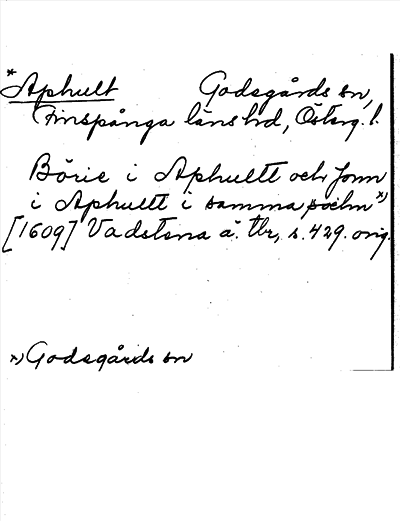 * Aphult Godegårds sn,
Finspånga läns hd, Österg. l.
Börie i Aphultt och Jonn
i Aphultt i samma sochn *)
[1609] Vadstena ä. tbr, s. 429. orig.
*) Godegårds sn